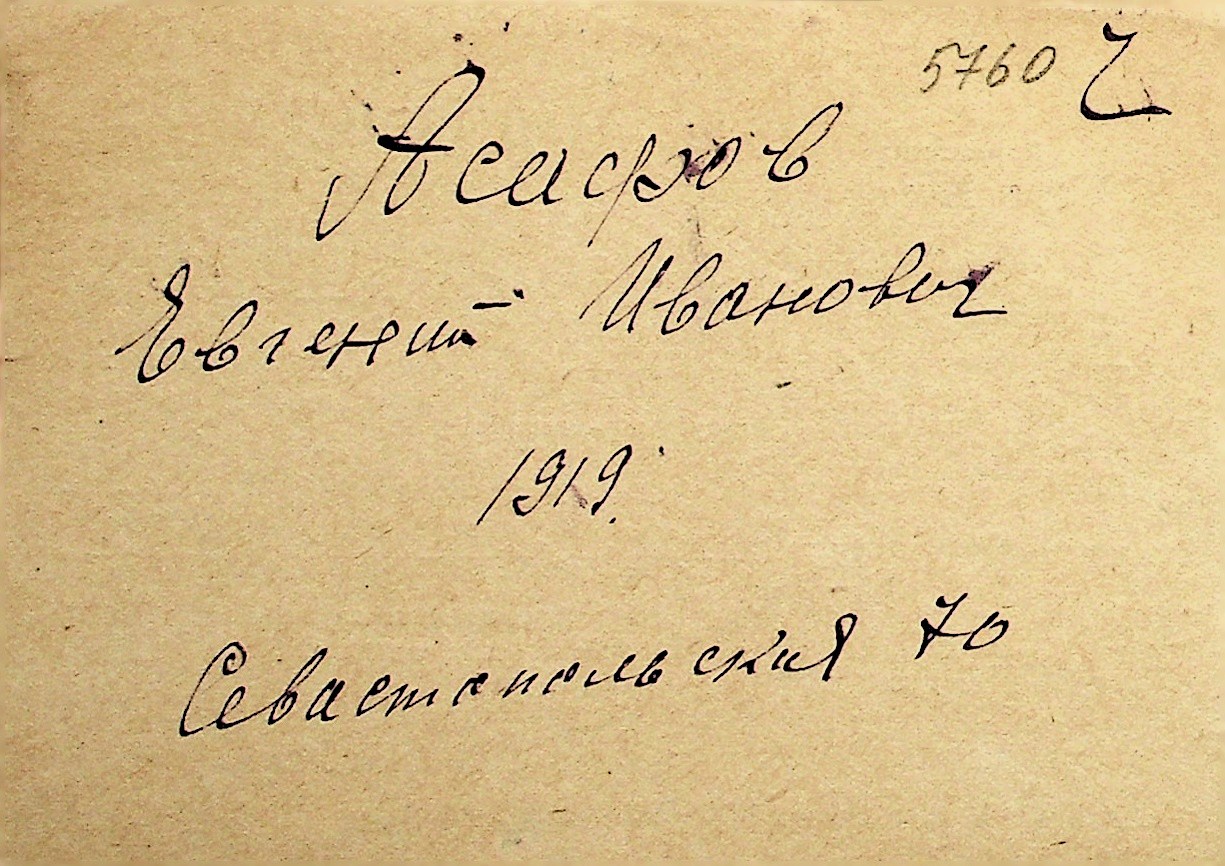 5760 Ч
Асафов
Евгений Иванович
1919.
Севастопольская 70